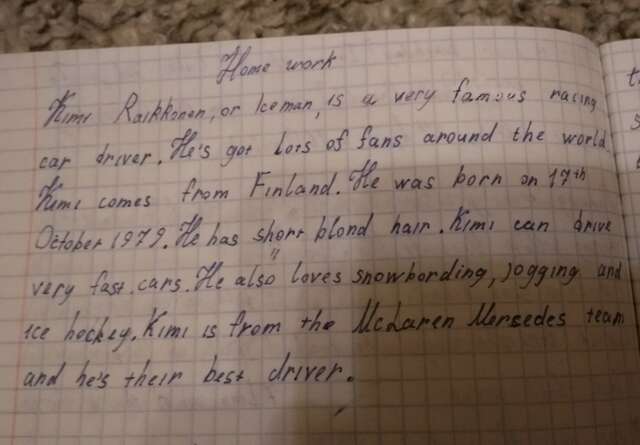 Home work
Kimi Raikkonen, or Iceman, is a very famous racing
car driver. He's got lots of fans around the world.
Kimi comes from Finland. He was born on 17th
October 1979. He has short blond hair. Kimi can drive
very fast cars. He also loves snowbording, jogging and
ice hockey. Kimi is from the McLaren Mersedes team
and he's their best driver.